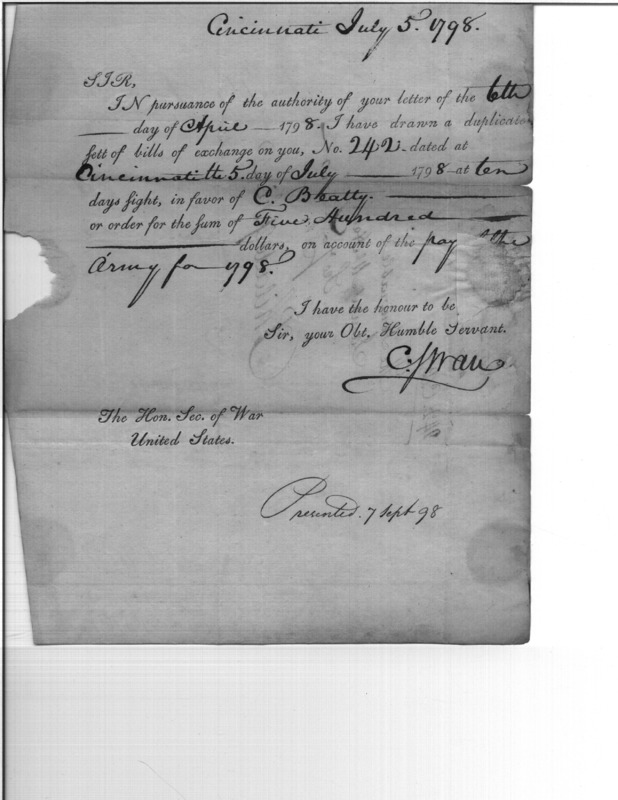 Cincinnati July 5. 1798.
SIR,
IN pursuance of the authority of your letter of the 6th
day of April 1798. I have drawn a duplicate
sett of bills of exchange on you, No. 242 dated at
Cincinnati the 5. day of July 1798 at ten
days sight, in favor of C. Beatty.
or order for the sum of Five Hundred
dollars, on account of the pay of the
Army for 1798.
I have the honour to be
Sir, your Obt. Humble Servant.
C. Swan
The Hon. Sec. of War
United States.
Presented. 7 Sept 98